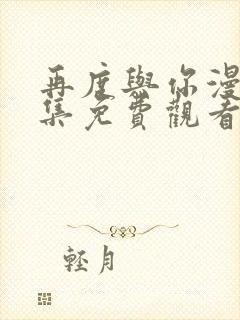 再度與你漫
集免費觀看
輕月